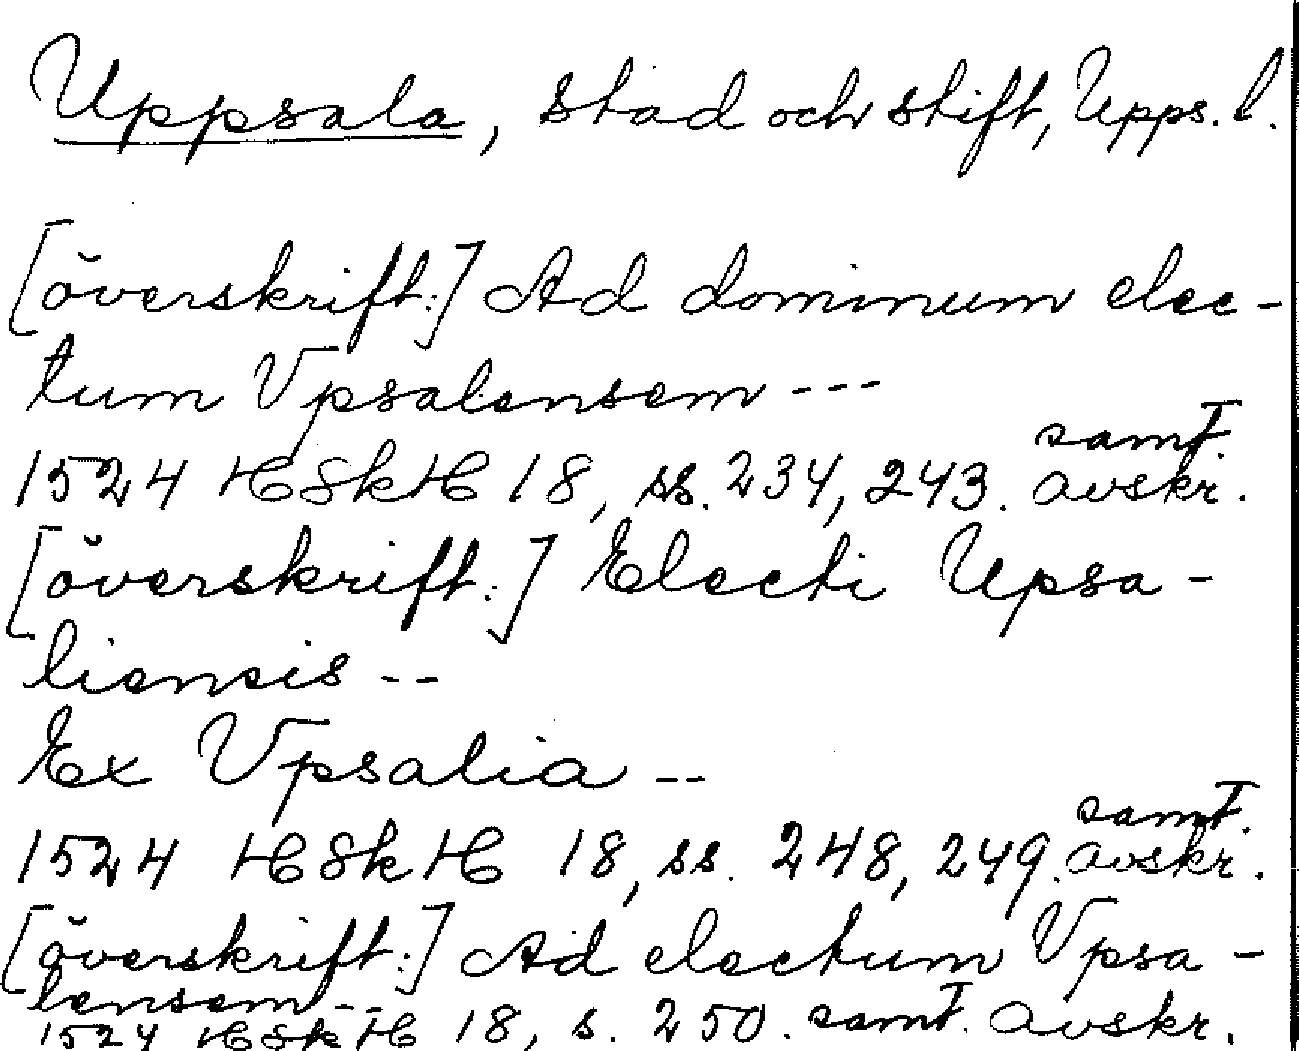 Uppsala, stad och stift, Upps. l.
[överskrift:] Ad dominum elec-
tum Vpsalensem ---
samt.
1524 HSkH 18, ss. 234, 243. avskr.
[överskrift:] Electi Upsa-
liensis --
Ex Vpsalia --
samt.
1524 HSkH 18, ss. 248, 249. avskr.
[överskrift:] Ad electum Vpsa-
lensem --
1524 HSkH 18, s. 250. samt. avskr.